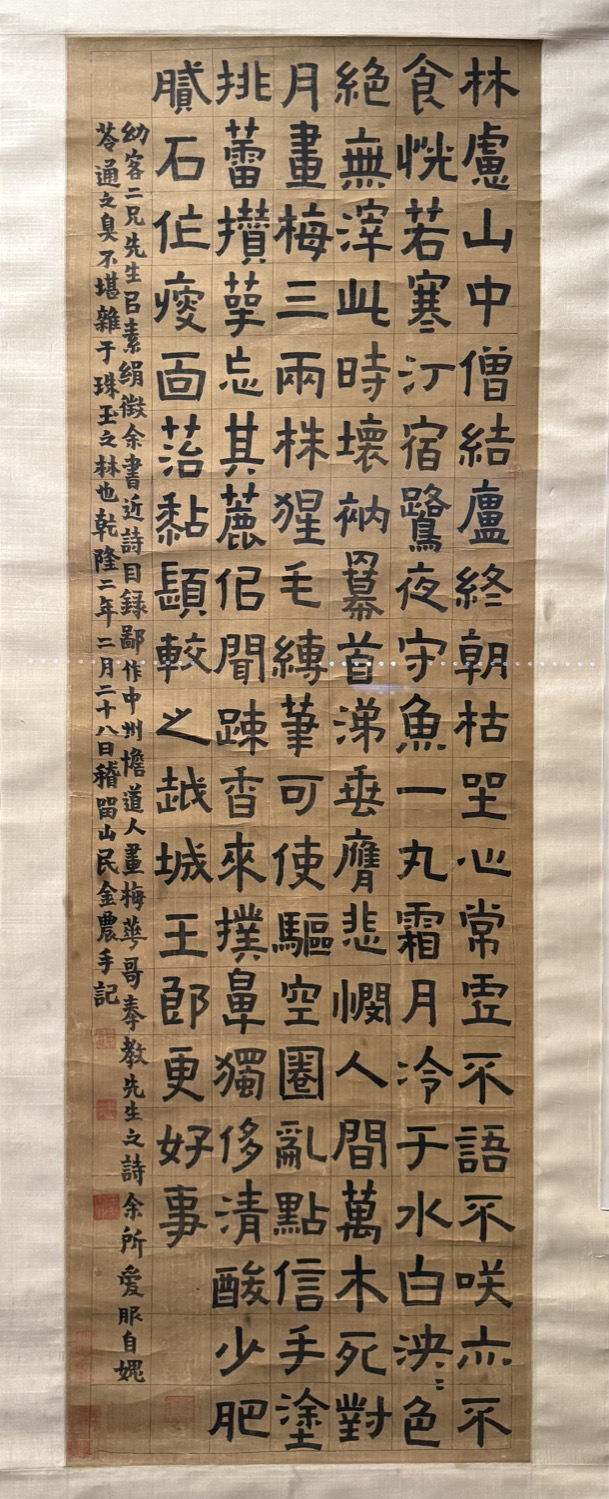 林慮山中僧結廬終朝枯坐心常虛不語不咲亦不
食恍若寒汀宿鷺夜守魚一丸霜月冷于水白泱〻色
絕無滓此時壞衲冪首涕垂膺悲憫人間萬木死對
月畫梅三兩株猩毛縛筆可使驅空圈亂點信手塗
挑蕾攢萼忘其麄但聞踈香來撲鼻獨侈清酸少肥
膩石作瘦面苔黏顋較之越城王郎更好事
幼客二兄先生㠯素絹徵余書近詩目錄鄙作中州憺道人畫梅華哥奉教先生之詩余所愛服自媿
苓通之臭不堪雜于珠玉之林也乾隆二年二月二十八日稽留山民金農手記